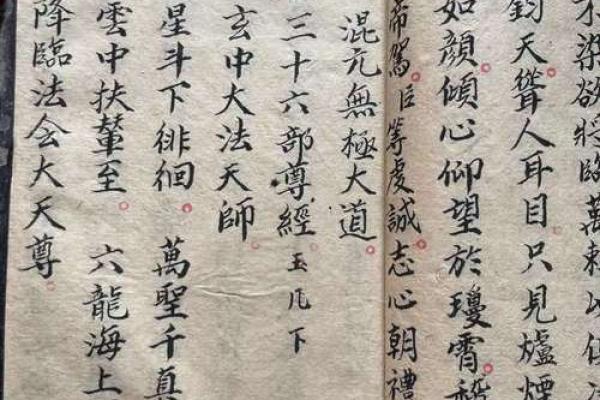 染欲將臨萬籟以俱
鈞天聳人耳目只見爐煙
如顔傾心仰望於瓊霄
帝駕臣等虔誠志心朝禮
混元無極大道
三十六部尊經 玉几下
玄中大法天師
星斗下徘徊 萬聖千真
雲中扶輦至 六龍海上
降臨法会大天尊